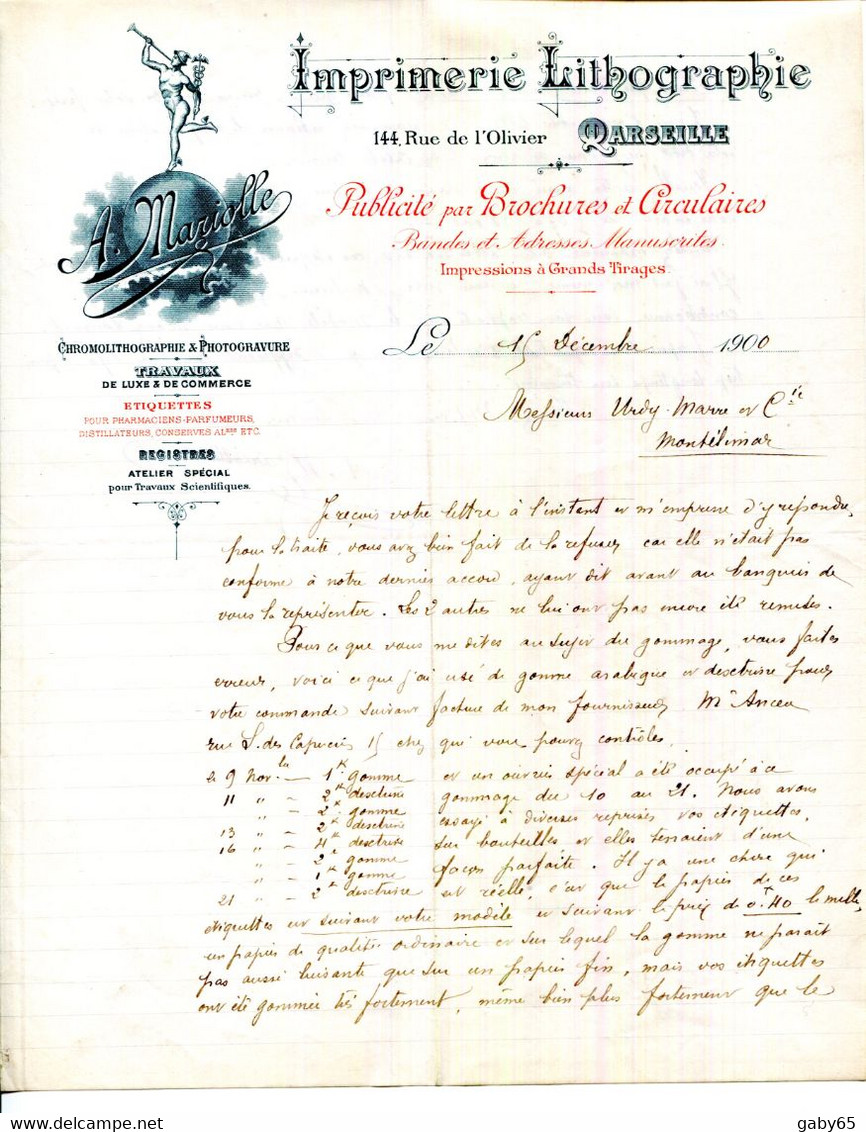 Imprimerie Lithographie
144, Rue de l'Olivier MARSEILLE
Publicité par Brochures et Circulaires
Bandes et Adresses Manuscrites.
Impressions à Grands Tirages.
A. Mariolle
CHROMOLITHOGRAPHIE & PHOTOGRAVURE
TRAVAUX
DE LUXE & DE COMMERCE
ETIQUETTES
POUR PHARMACIENS-PARFUMEURS,
DISTILLATEURS, CONSERVES AL.RES ETC.
REGISTRES
ATELIER SPÉCIAL
pour Travaux Scientifiques.
Le 15 Décembre 1900
Messieurs Urdy-Marre et Cie
Montélimar
Je reçois votre lettre à l'instant et m'empresse d'y répondre,
pour la traite, vous avez bien fait de la refuser car elle n'était pas
conforme à notre dernier accord, ayant dit avant au banquier de
vous la représenter. Les 2 autres ne lui ont pas encore été remises.
Pour ce que vous me dites au sujet du gommage, vous faites
erreur, voici ce que j'ai usé de gomme arabique et dextrine pour
votre commande suivant facture de mon fournisseur Mr
rue des Capucins 15 chez qui vous pouvez contrôler.
le 9 Nov. 1k gomme et un ouvrier spécial a été occupé à ce
11 " - 2k dextrine gommage du 10 au 21. Nous avons
" - 2k gomme essayé à diverses reprises vos étiquettes
13 " - 2k dextrine
16 " - 4k dextrine sur bouteilles et elles tenaient d'une
" - 2k gomme façon parfaite. Il y a une chose qui
" - 1k gomme
21 " - 2k dextrine est réelle, c'est que le papier de ces
étiquettes est suivant votre modèle et suivant le prix de 0f40 le mille,
un papier de qualité ordinaire et sur lequel la gomme ne parait
pas aussi luisante que sur un papier fin, mais vos étiquettes
ont été gommée très fortement, même bien plus fortement que le
delcampe.net
gaby65